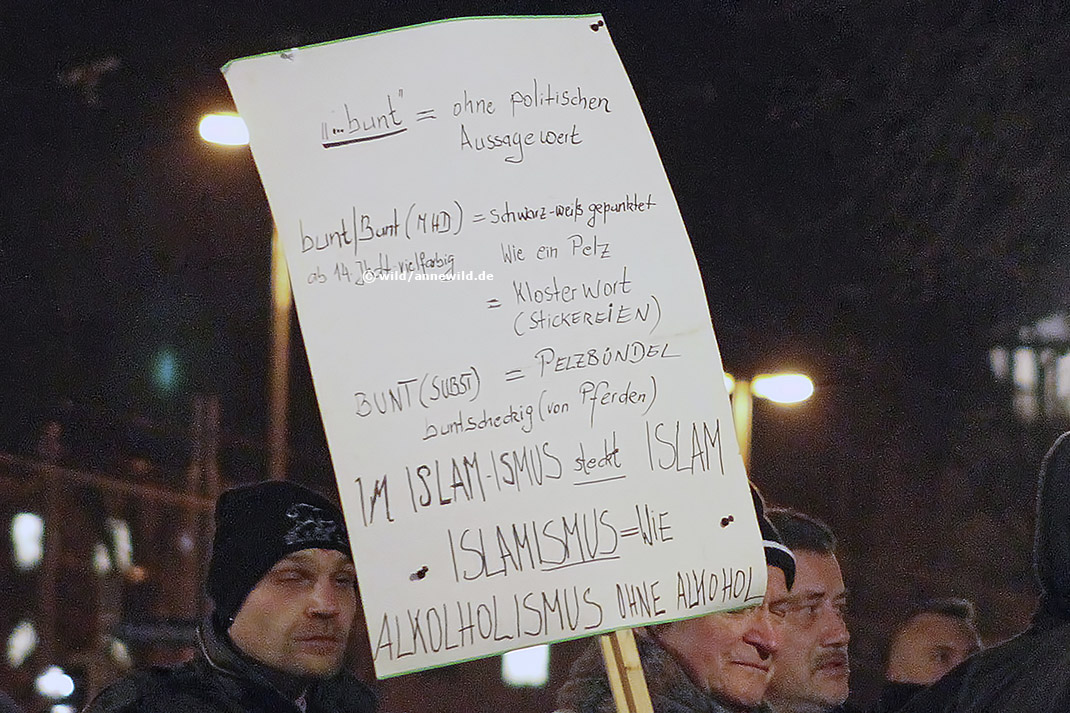 "...bunt" = ohne politischen
Aussagewert
bunt/Bunt (MHD) = schwarz-weiß gepunktet
ab 14. Jhdt. vielfarbig
Wie ein Pelz
©wild/annewild.de
= Klosterwort
(STICKEREIEN)
BUNT (SUBST) = PELZBÜNDEL
buntscheckig (von Pferden)
IM ISLAM-ISMUS steckt ISLAM
ISLAMISMUS = WIE
ALKOLHOLISMUS OHNE ALKOHOL